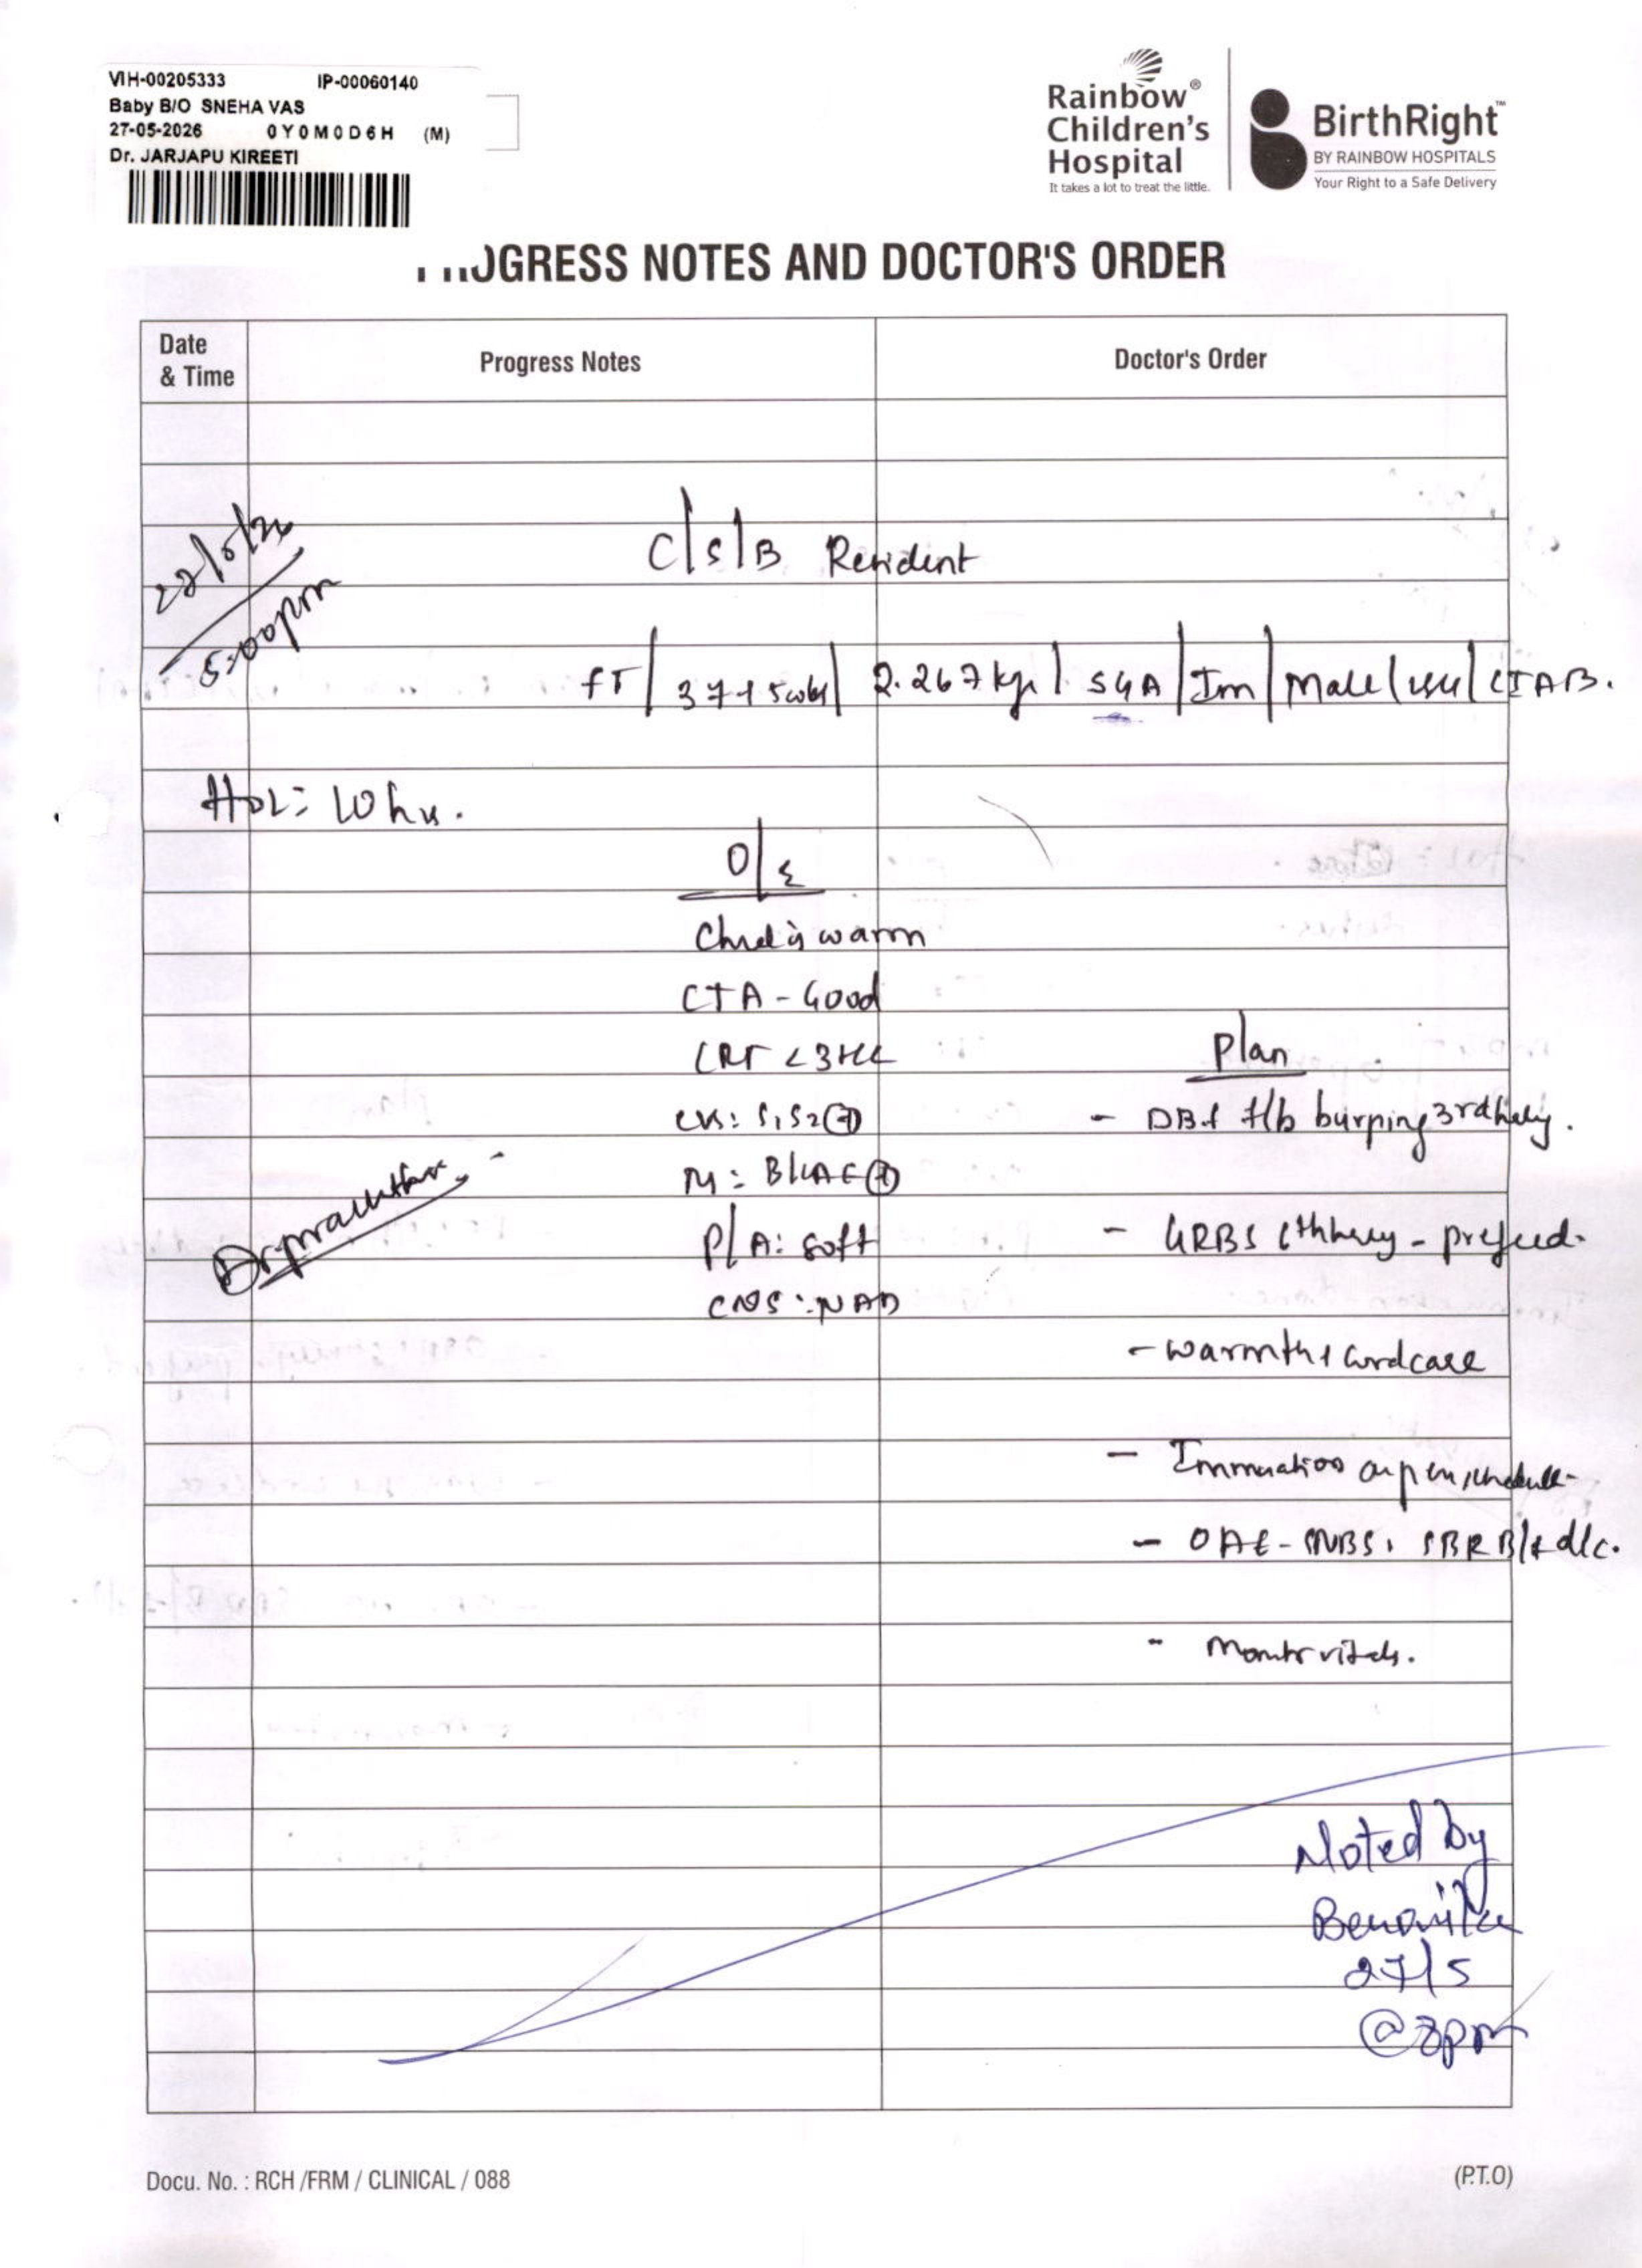 VIH-00205333 IP-00060140
Baby B/O SNEHA VAS
27-05-2026 0Y0M0D6H (M)
Dr. JARJAPU KIREETI
Rainbow®
Children's
Hospital
It takes a lot to treat the little.
BirthRight™
BY RAINBOW HOSPITALS
Your Right to a Safe Delivery
PROGRESS NOTES AND DOCTOR'S ORDER
Date
& Time
Progress Notes
Doctor's Order
C/S/B Resident
5:00pm
FT / 37+5wks / 2.267kgs / SGA / Im / Male / / CIAB.
HOL: 10 hrs.
O/E
Child is warm
CTA - Good
CRT <3sec
CVS: S1S2 (+)
RS: BLAE (+)
P/A: soft
CNS: NAD
Plan
- DBF f/b burping 3rd hrly.
- GRBS 6th hrly - prefeed.
- warmth & cord care
- as per schedule
- OAE - NBS, SBR B/f d/c.
- Monitor vitals.
Noted by
27/5
@ 8pm
Docu. No. : RCH /FRM / CLINICAL / 088
(P.T.O)